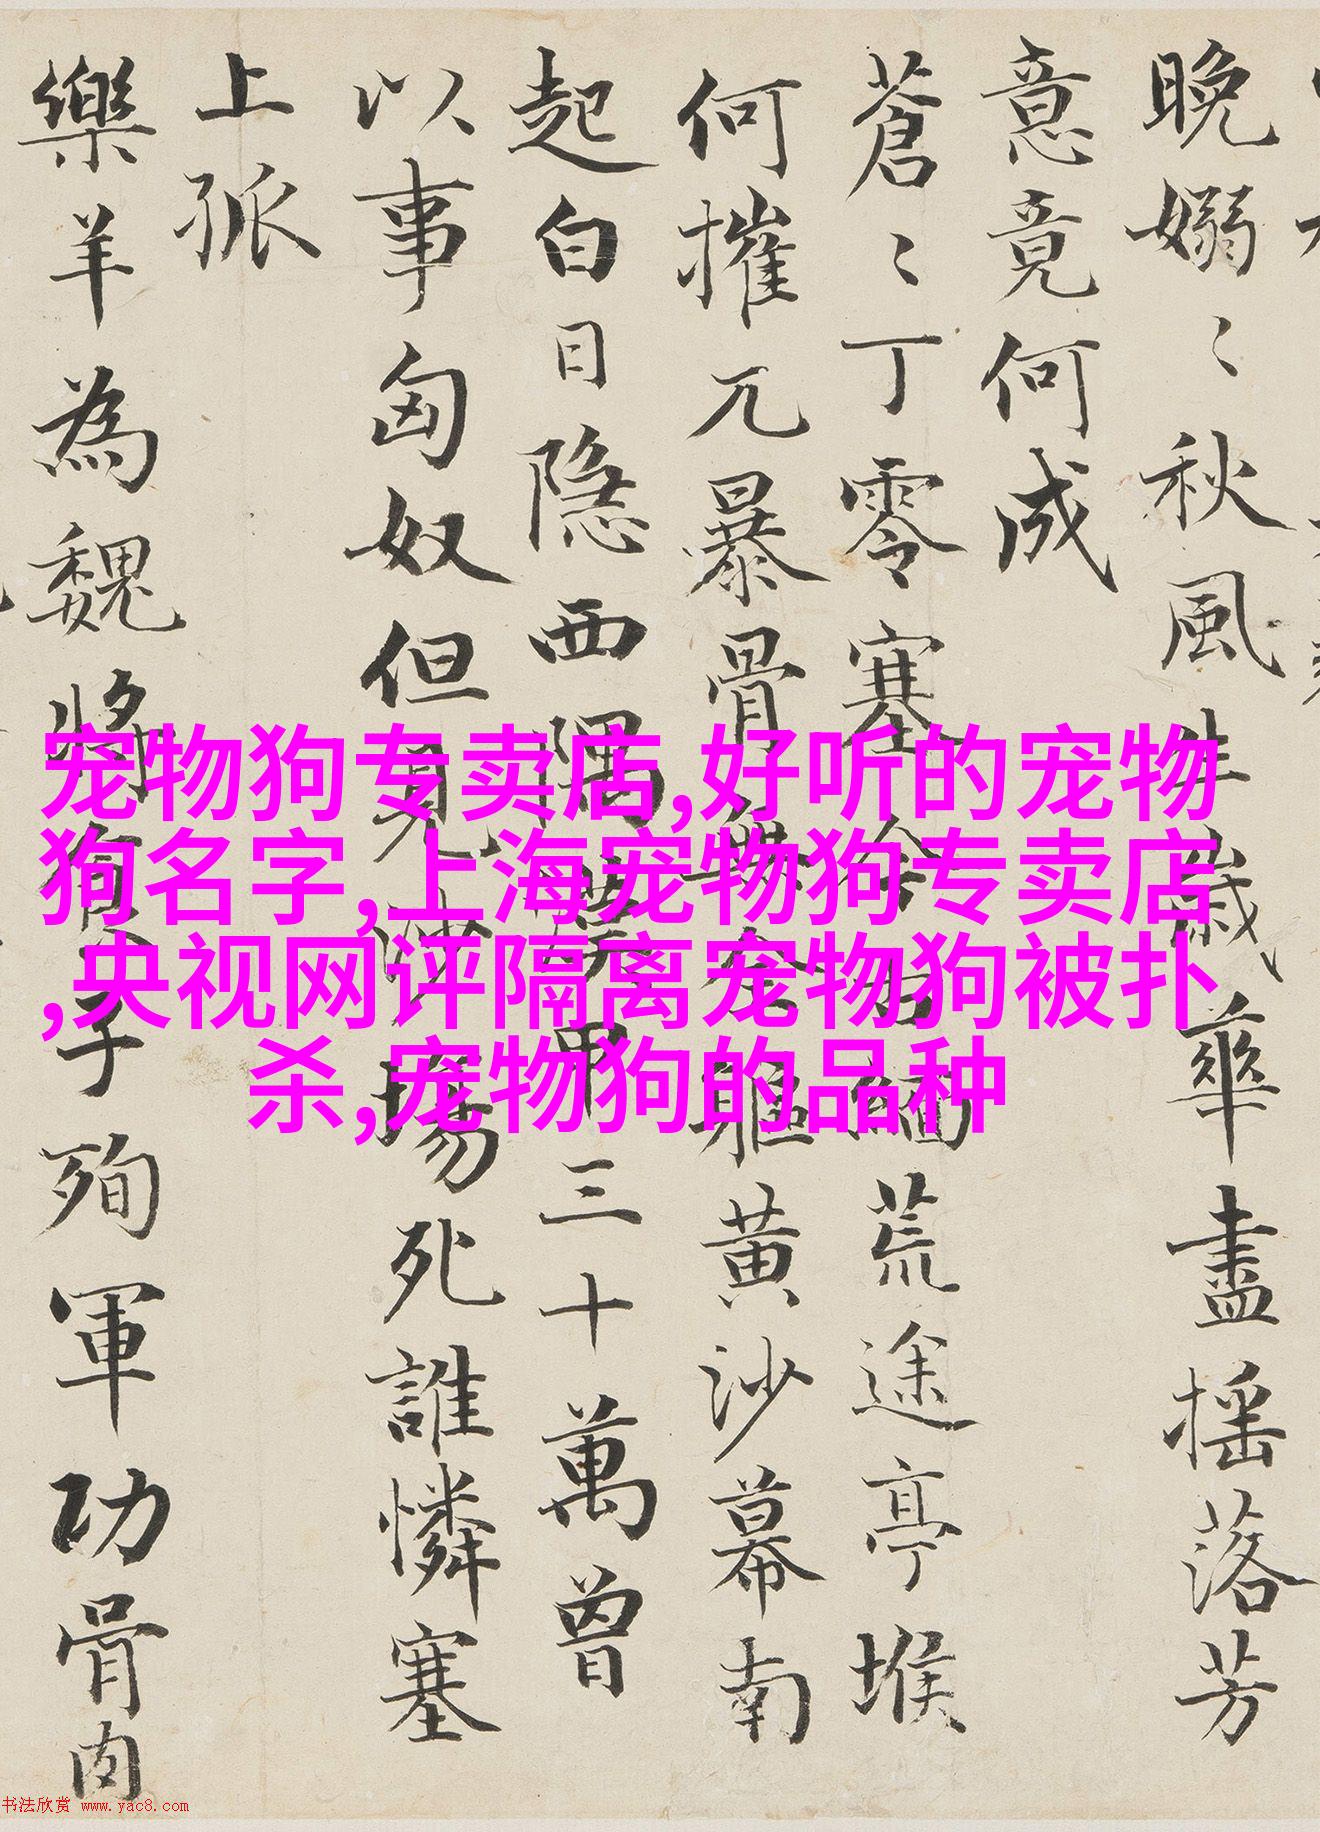 晚嫋〻秋風生歲華盡摇落芳
意竟何成
蒼〻丁零塞今古緬荒途亭堠
何摧兀暴骨無全軀黄沙幕南
起白日隐西隅漢甲三十萬曾
以事匈奴但見沙場死誰憐塞
上孤
樂羊為魏將食子殉軍功骨肉
宠物狗专卖店,好听的宠物
狗名字,上海宠物狗专卖店
,央视网评隔离宠物狗被扑
杀,宠物狗的品种
书法欣赏 www.yac8.com